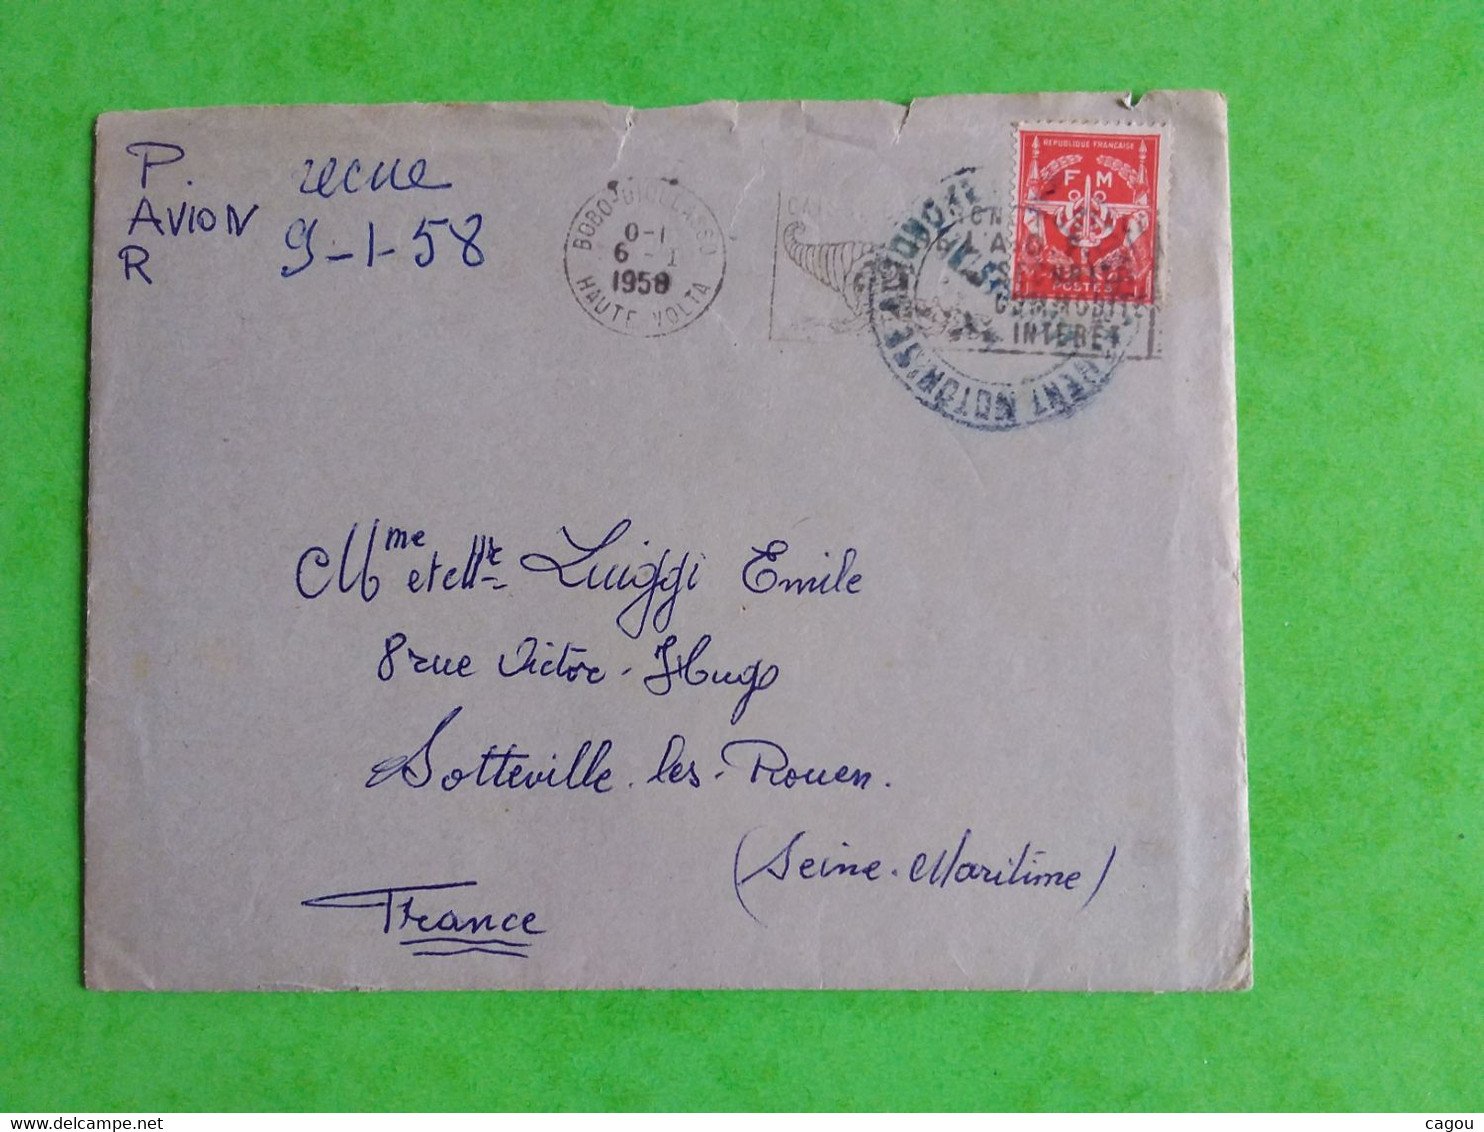 P. recue
AVION 9-1-58
R
BOBO-DIOULASSO
0-1
6 - 1
1958
HAUTE VOLTA
REPUBLIQUE FRANÇAISE
F M
POSTES
COMMODITE
INTERET
MOTORISE AUTONOME
Mme et Mr Luiggi Emile
8 rue Victor-Hugo
Sotteville-les-Rouen.
(Seine-Maritime)
France
cagou